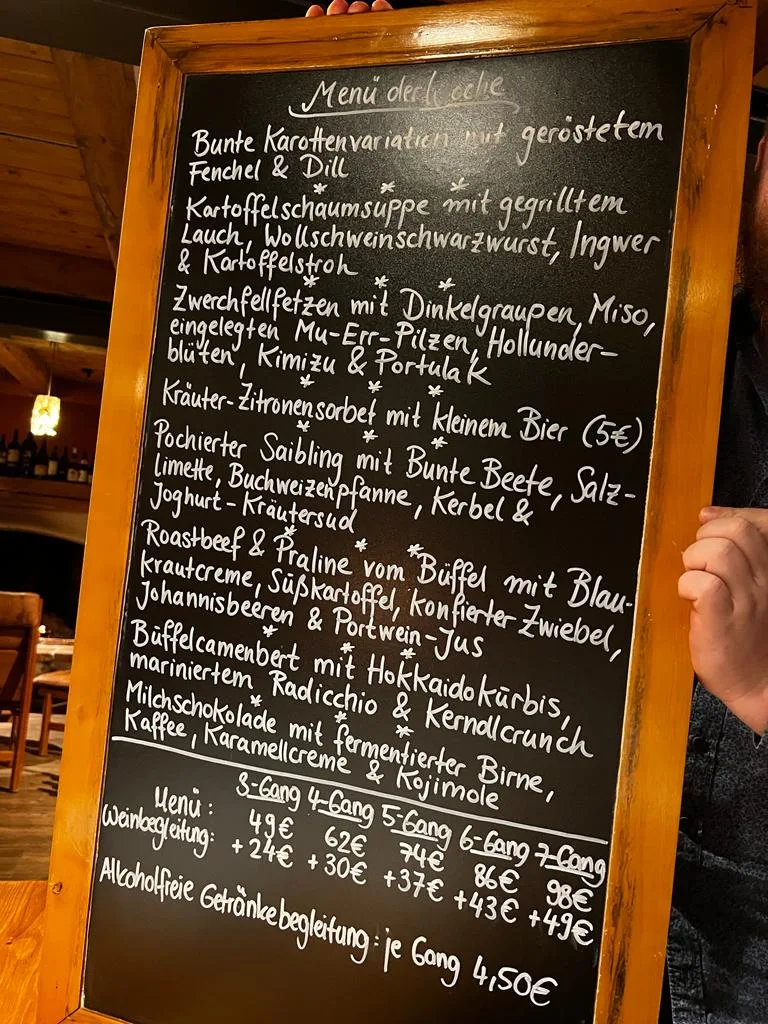 Menü der Woche
Bunte Karottenvariation mit geröstetem
Fenchel & Dill
* * *
Kartoffelschaumsuppe mit gegrilltem
Lauch, Wollschweinschwarzwurst, Ingwer
& Kartoffelstroh
* * *
Zwerchfellfetzen mit Dinkelgraupen, Miso,
eingelegten Mu-Err-Pilzen, Hollunder-
blüten, Kimizu & Portulak
* * *
Kräuter-Zitronensorbet mit kleinem Bier (5€)
* * *
Pochierter Saibling mit Bunte Beete, Salz-
limette, Buchweizenpfanne, Kerbel &
Joghurt-Kräutersud
* * *
Roastbeef & Praline vom Büffel mit Blau-
krautcreme, Süßkartoffel, konfierter Zwiebel,
Johannisbeeren & Portwein-Jus
* * *
Büffelcamenbert mit Hokkaidokürbis,
mariniertem Radicchio & Kerndlcrunch
* * *
Milchschokolade mit fermentierter Birne,
Kaffee, Karamellcreme & Kojimole
3-Gang 4-Gang 5-Gang 6-Gang 7-Gang
Menü: 49€ 62€ 74€ 86€ 98€
Weinbegleitung: +24€ +30€ +37€ +43€ +49€
Alkoholfreie Getränkebegleitung: je Gang 4,50€